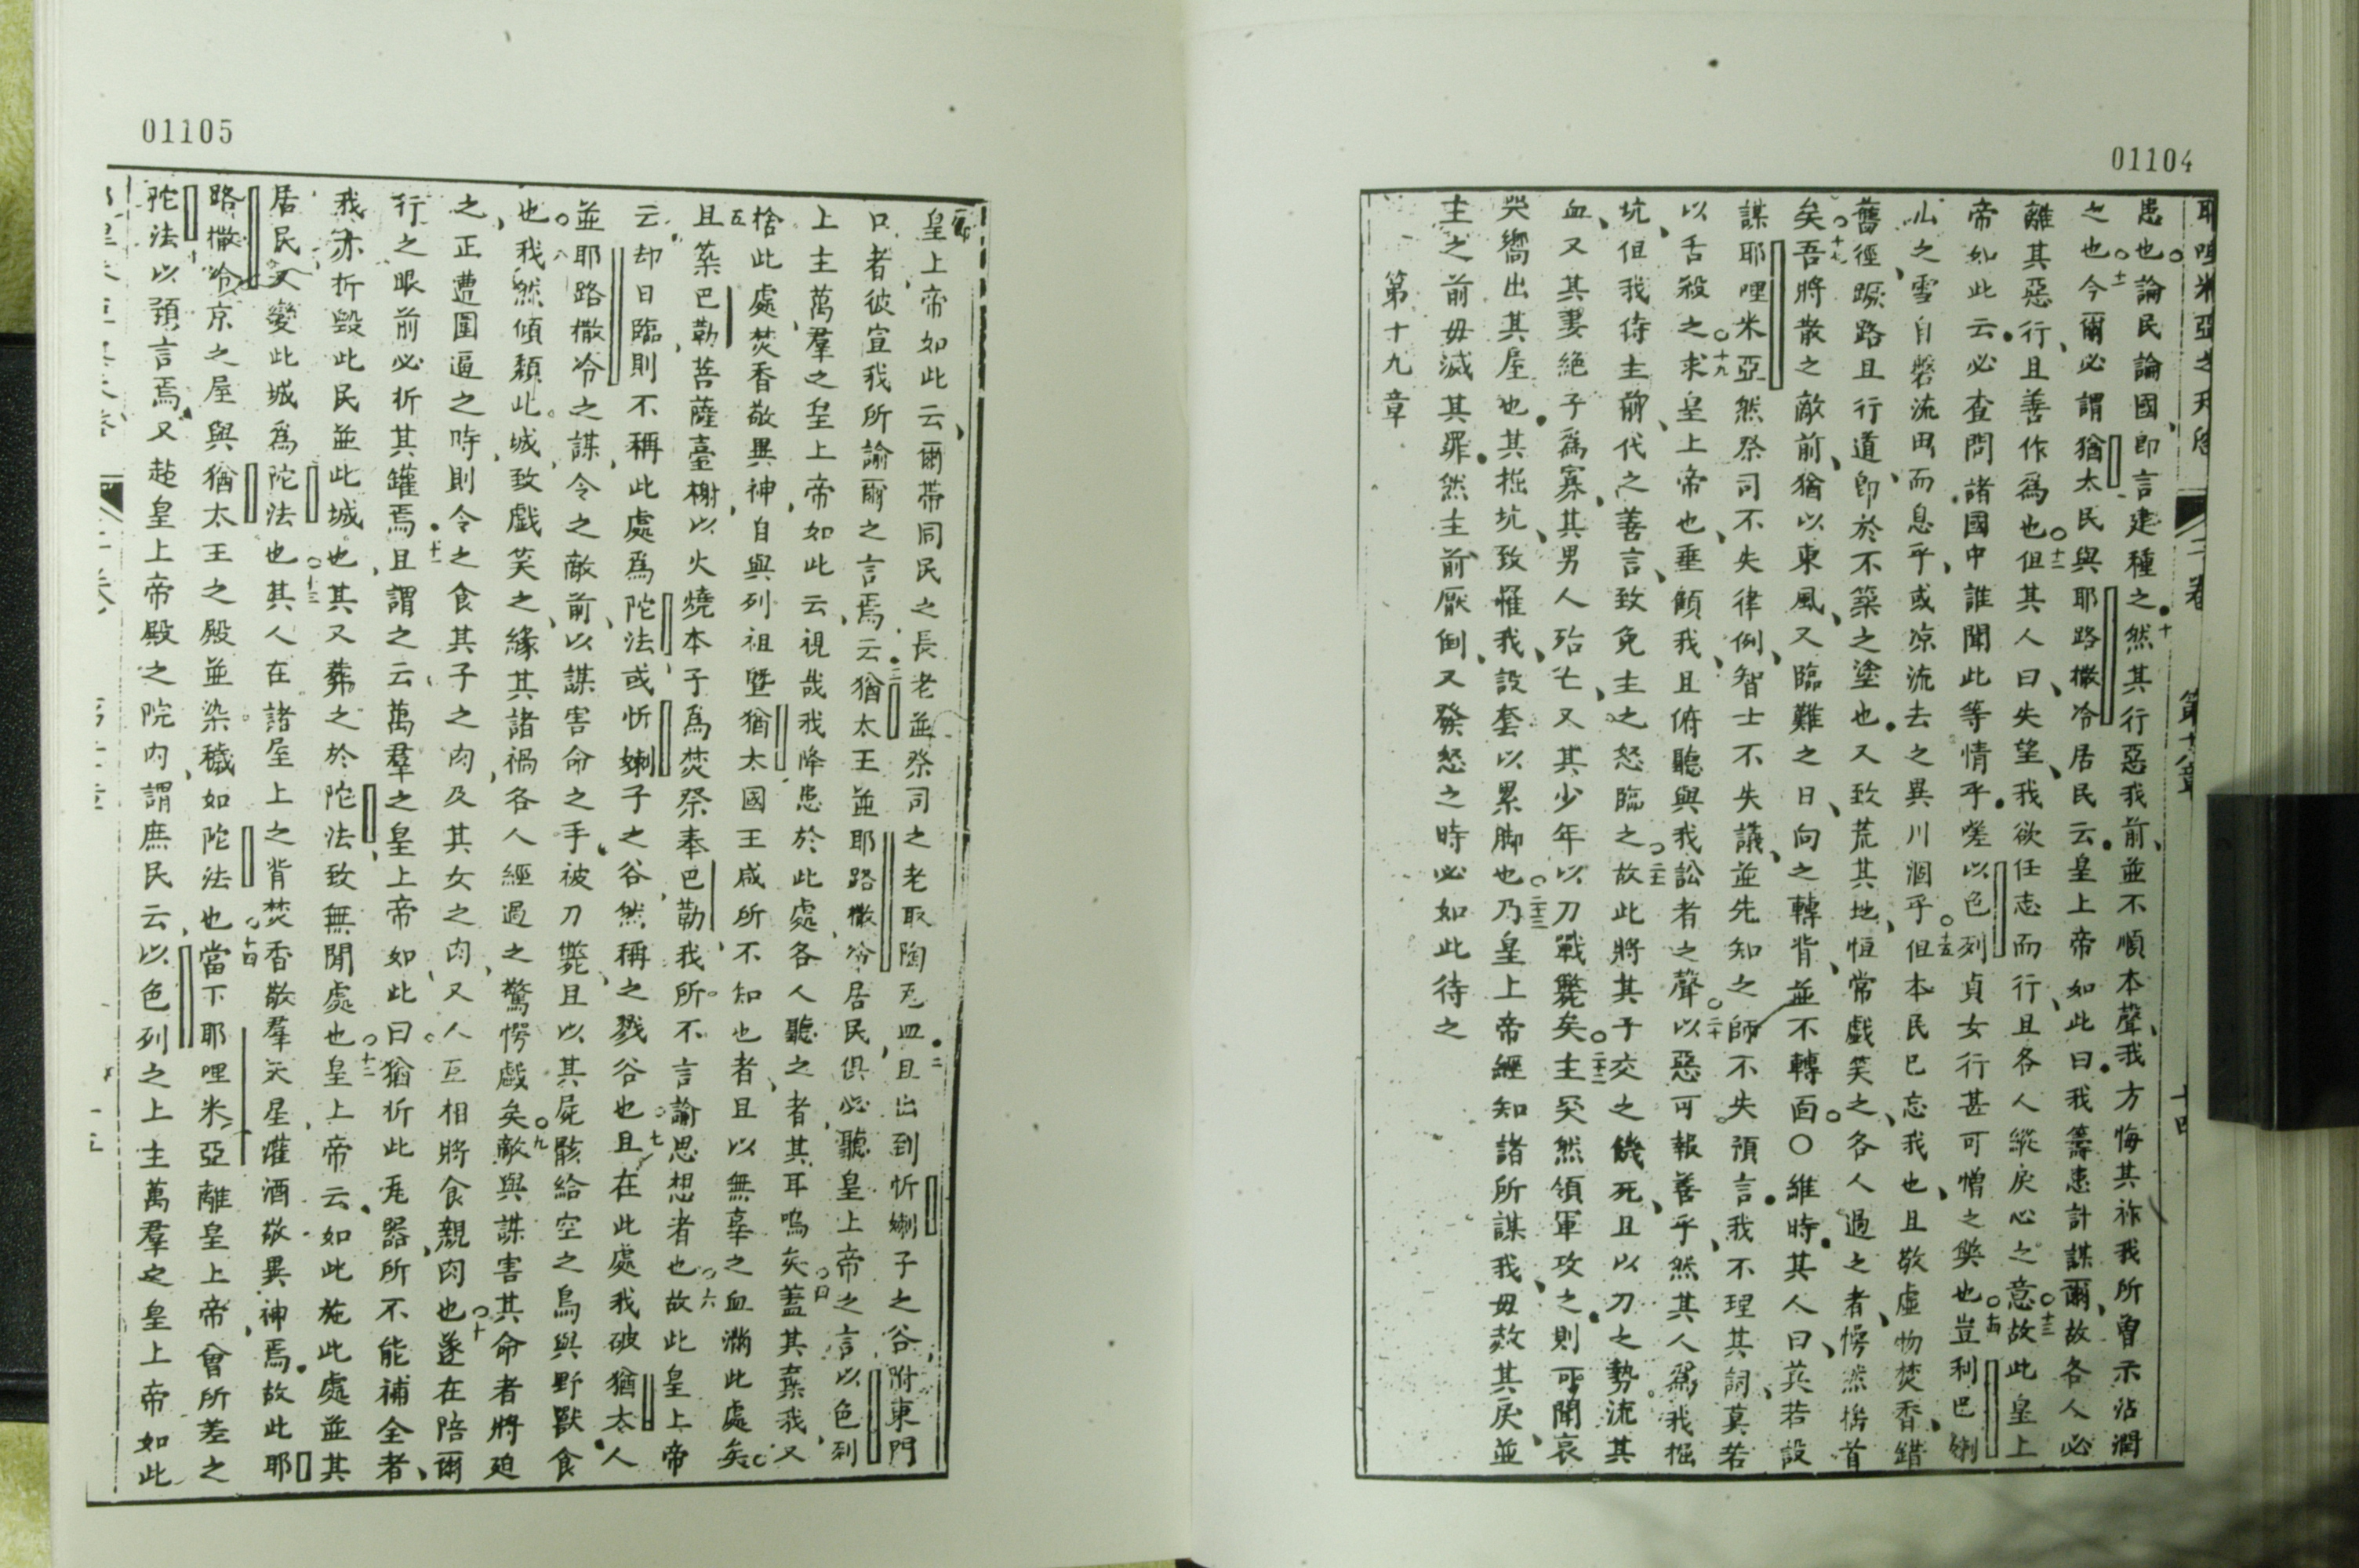 01104
耶哩米亞之天啓 二卷 第十八章 十四
患也論民論國即言建種之然其行惡我前並不順本聲我方悔其祚我所曾示沾潤
之也今爾必謂猶太民與耶路撒冷居民云皇上帝如此曰我籌患計謀爾故各人必
離其惡行且善作爲也但其人曰失望我欲任志而行且各人縱戾心之意故此皇上
帝如此云必查問諸國中誰聞此等情乎嗟以色列貞女行甚可憎之獘也豈利巴㜑
山之雪自磐流田而息乎或凉流去之異川涸乎但本民已忘我也且敬虛物焚香錯
舊徑蹶路且行道即於不築之塗也又致荒其地恒常戲笑之各人過之者愕然搖首
矣吾將散之敵前猶以東風又臨難之日向之轉背並不轉面〇維時其人曰英若設
謀耶哩米亞然祭司不失律例智士不失議並先知之師不失預言我不理其詞莫若
以舌殺之求皇上帝也垂顧我且俯聽與我訟者之聲以惡可報善乎然其人爲我掘
坑但我侍主前代之善言致免主之怒臨之故此將其子交之饑死且以刀之勢流其
血又其妻絕子爲寡其男人殆亡又其少年以刀戰斃矣主突然領軍攻之則可聞哀
哭嚮出其屋也其掘坑致罹我設套以累脚也乃皇上帝經知諸所謀我毋赦其戾並
主之前毋滅其罪然主前厭倒又發怒之時必如此待之
第十九章
01105
皇上帝如此云爾帶同民之長老並祭司之老取陶瓦皿且出到忻㜑子之谷附東門
口者彼宣我所諭爾之言焉云猶太王並耶路撒冷居民俱必聽皇上帝之言以色列
上主萬羣之皇上帝如此云視哉我降患於此處各人聽之者其耳鳴矣蓋其棄我又
捨此處焚香敬異神自與列祖曁猶太國王咸所不知也者且以無辜之血滿此處矣
且築巴勒菩薩臺榭以火燒本子爲焚祭奉巴勒我所不言諭思想者也故此皇上帝
云却日臨則不稱此處爲陀法或忻㜑子之谷然稱之戮谷也且在此處我破猶太人
並耶路撒冷之謀令之敵前以謀害命之手被刀斃且以其屍骸給空之鳥與野獸食
也我然傾頹此城致戲笑之緣其諸禍各人經過之驚愕戲矣敵與謀害其命者將廹
之正遭圍逼之時則令之食其子之肉及其女之肉又人互相將食親肉也遂在陪爾
行之眼前必折其罐焉且謂之云萬羣之皇上帝如此曰猶折此瓦器所不能補全者
我亦折毀此民並此城也其又葬之於陀法致無閒處也皇上帝云如此施此處並其
居民又變此城爲陀法也其人在諸屋上之背焚香敬羣天星灌酒敬異神焉故此耶
路撒冷京之屋與猶太王之殿並染穢如陀法也當下耶哩米亞離皇上帝曾所差之
陀法以預言焉又赴皇上帝殿之院内謂庶民云以色列之上主萬羣之皇上帝如此